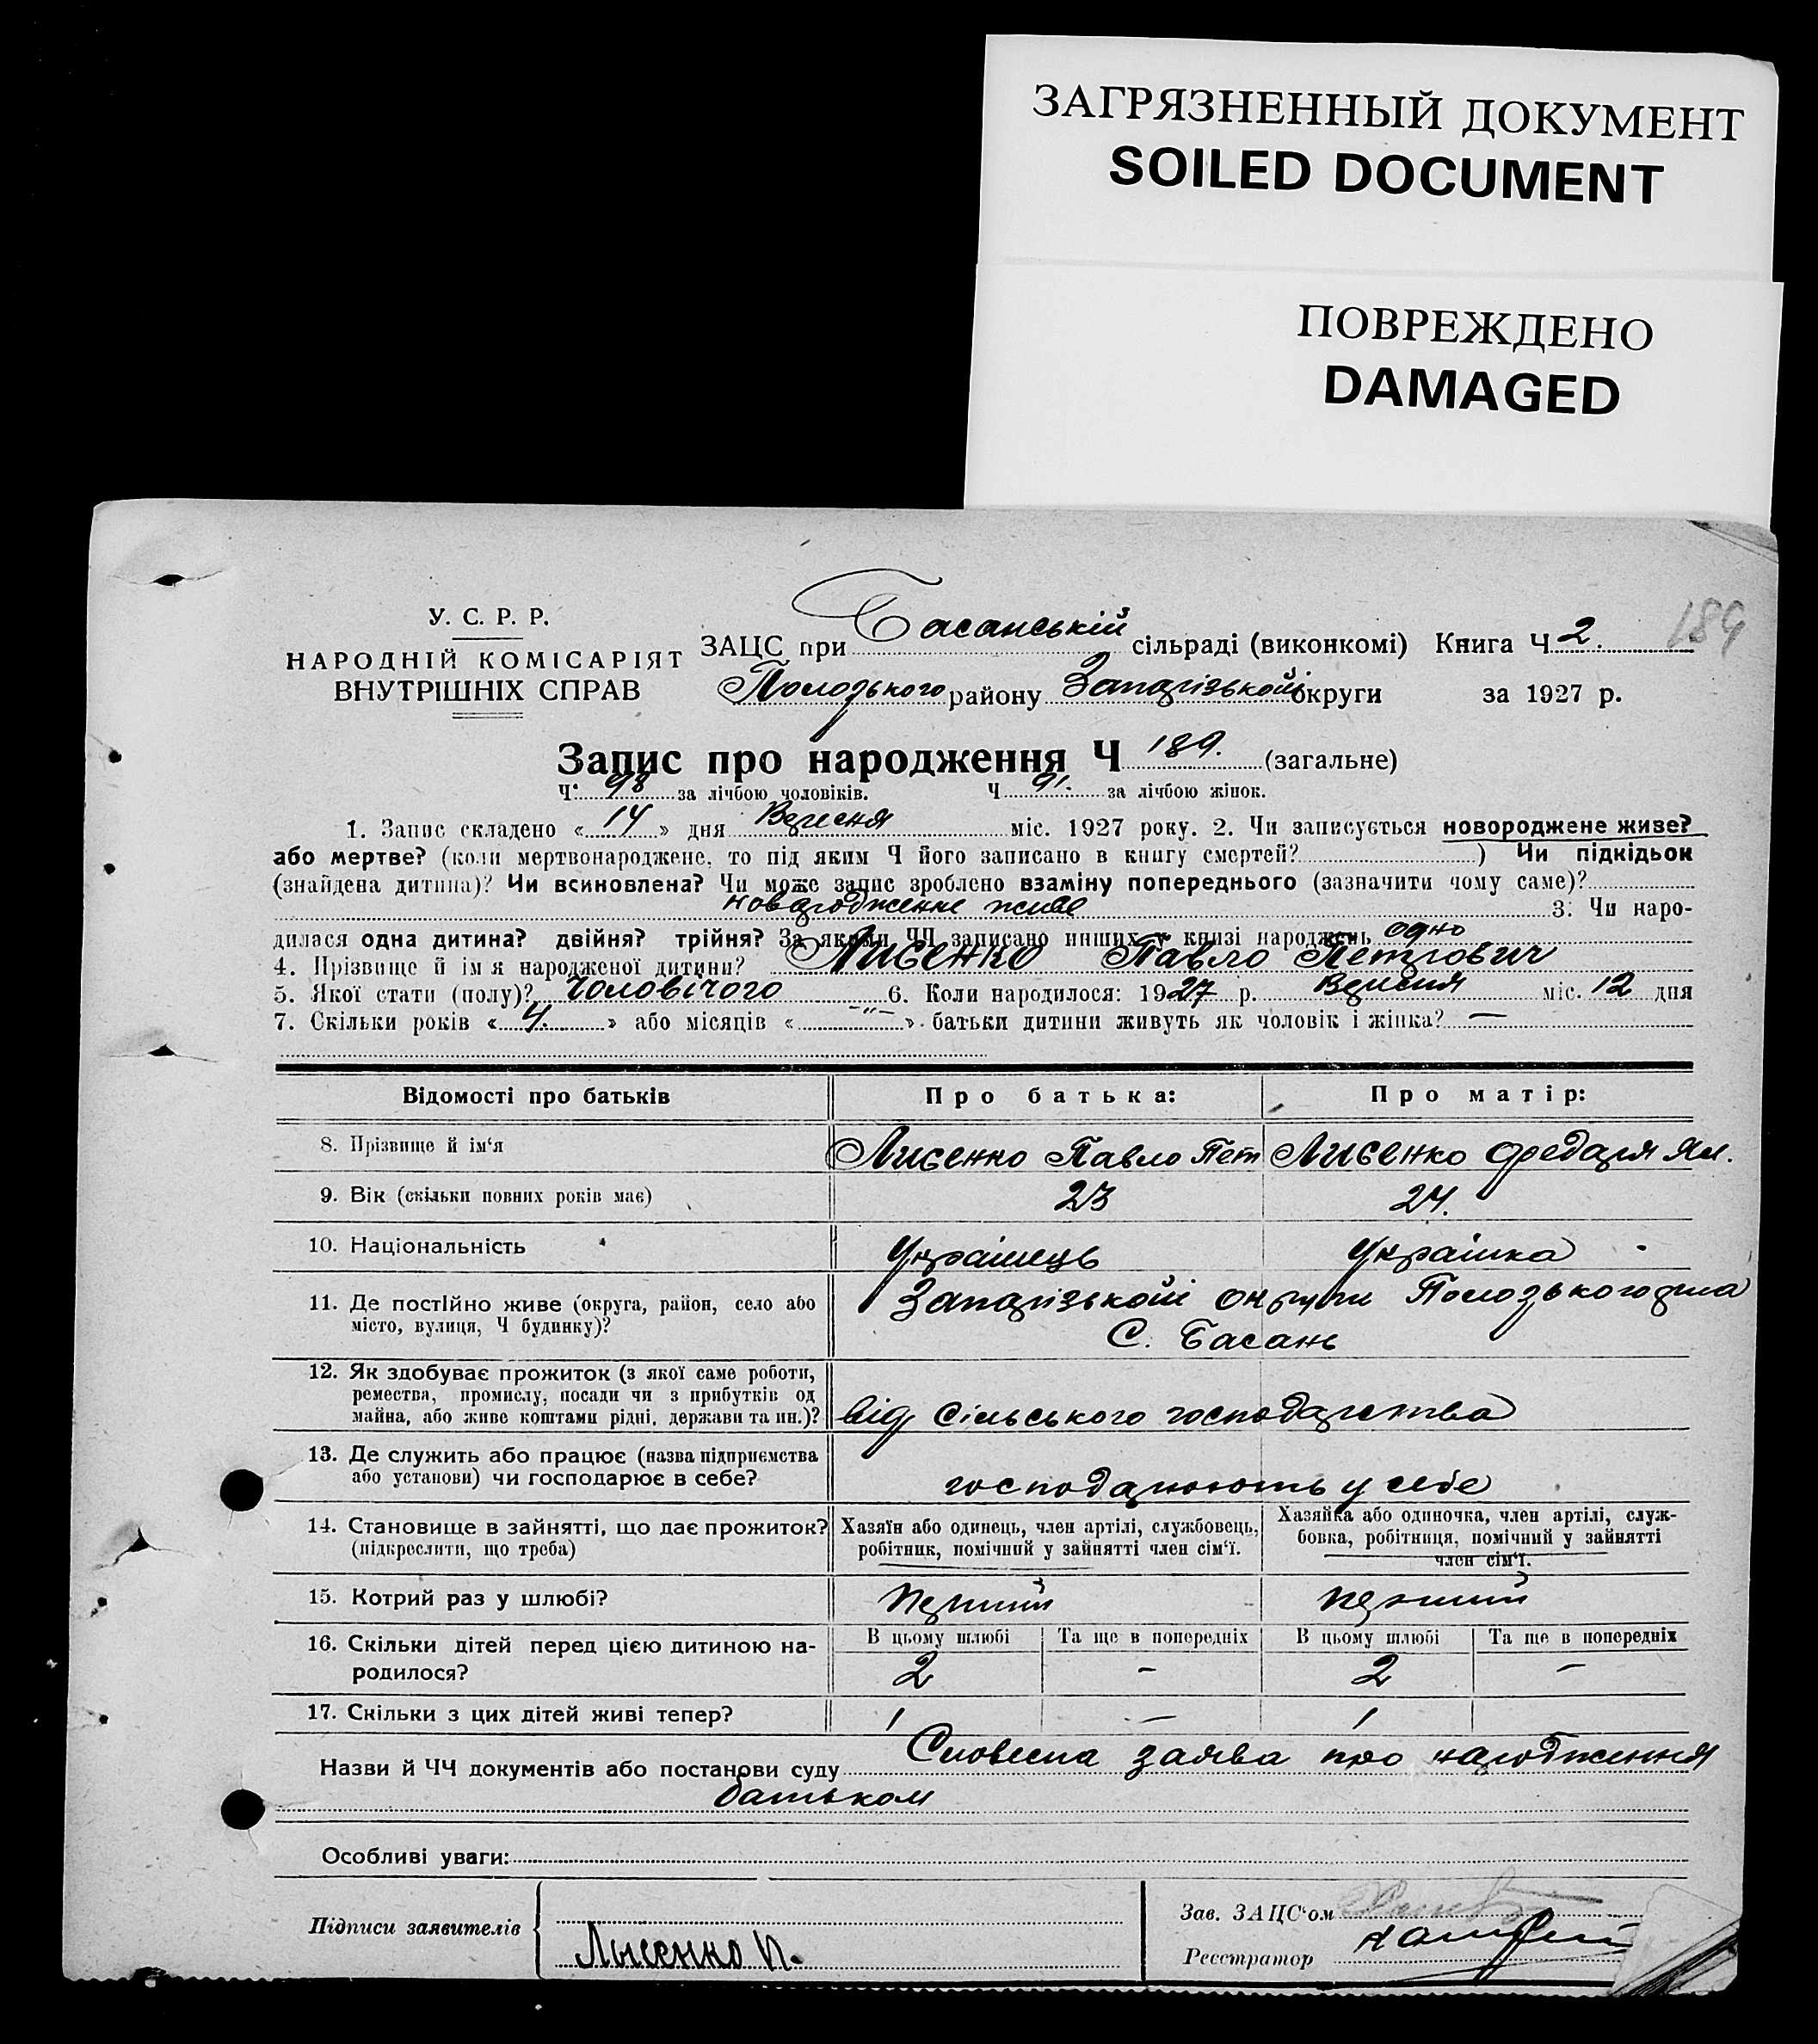 ЗАГРЯЗНЕННЫЙ ДОКУМЕНТ
SOILED DOCUMENT
ПОВРЕЖДЕНО
DAMAGED
189
У. С. Р. Р.
НАРОДНІЙ КОМІСАРІЯТ
ВНУТРІШНІХ СПРАВ
ЗАЦС при Басанській сільраді (виконкомі) Книга Ч 2.
Пологського району Запорізької округи за 1927 р.
Запис про народження Ч 189. (загальне)
Ч. 98 за лічбою чоловіків. Ч 91. за лічбою жінок.
1. Запис складено « 14 » дня Вересня міс. 1927 року. 2. Чи записується новороджене живе?
або мертве? (коли мертвонароджене, то під яким Ч його записано в книгу смертей? ) Чи підкідьок
(знайдена дитина)? Чи всиновлена? Чи може запис зроблено взаміну попереднього (зазначити чому саме)?
новородженне живе 3. Чи наро-
дилася одна дитина? двійня? трійня? За якими ЧЧ записано инших у книзі народжень одно
4. Прізвище й ім'я народженої дитини? Лисенко Павло Петрович
5. Якої стати (полу)? Чоловічого 6. Коли народилося: 1927 р. Вересня міс. 12 дня
7. Скільки років « 4. » або місяців « –"– » батьки дитини живуть як чоловік і жінка? —
Відомості про батьків Про батька: Про матір:
8. Прізвище й ім'я Лисенко Павло Пет Лисенко Федаря Ял.
9. Вік (скільки повних років має) 23 24.
10. Національність Українець Українка
11. Де постійно живе (округа, район, село або
місто, вулиця, Ч будинку)?
Запорізької округи
С. Басань
12. Як здобуває прожиток (з якої саме роботи,
ремества, промислу, посади чи з прибутків од
майна, або живе коштами рідні, держави та ин.)? від сільського господарства
13. Де служить або працює (назва підприємства
або установи) чи господарює в себе? господарюють у себе
14. Становище в зайнятті, що дає прожиток?
(підкреслити, що треба)
Хазяїн або одинець, член артілі, службовець,
робітник, помічний у зайнятті член сім'ї.
Хазяйка або одиночка, член артілі, служ-
бовка, робітниця, помічний у зайнятті
член сім'ї.
15. Котрий раз у шлюбі? перший перший
16. Скільки дітей перед цією дитиною на-
родилося?
В цьому шлюбі Та ще в попередніх В цьому шлюбі Та ще в попередніх
2 – 2 –
17. Скільки з цих дітей живі тепер? 1 — 1
Назви й ЧЧ документів або постанови суду Словесна заява про народження
батьком
Особливі уваги:
Підписи заявителів
Лысенко П.
Зав. ЗАЦС'ом
Реєстратор